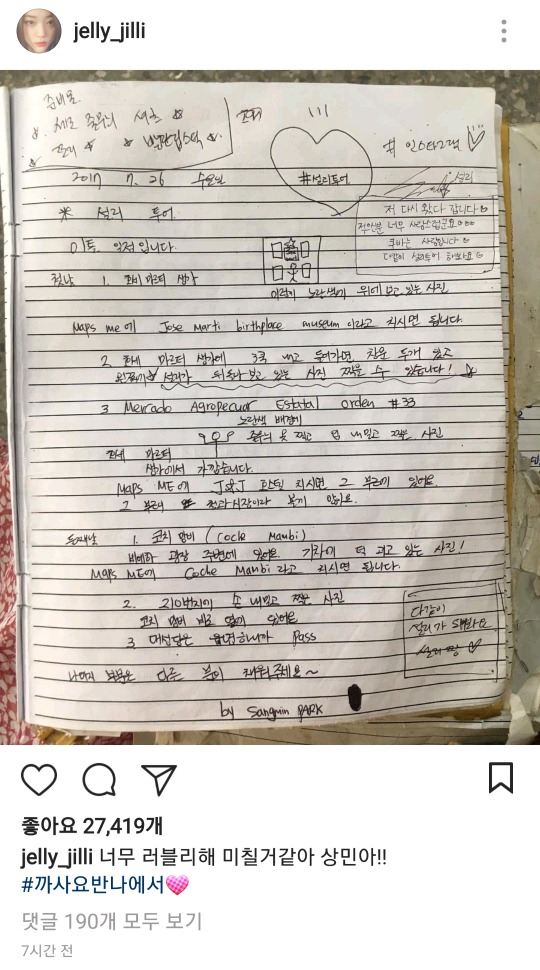 jelly_jilli
준비물
세로 줄무늬 셔츠
빨간립스틱
# 인스타그램
2017 7. 26 수요일
#설리투어
설리
※ 설리 투어
저 다시 왔다 갑니다
너무 사랑스럽군요
쿠바는 사랑입니다
이틀 일정입니다.
첫날 1. 호세 마르티 생가
노란색에 위에 보고 있는 사진
Maps me에 Jose Marti birthplace museum 이라고 치시면 됩니다.
2. 호세 마르티 생가에 3쿡 내고 들어가면 창문 두개 있고
왼쪽에 설리가 뒤돌아 보고 있는 사진 찍을 수 있습니다!
3 Mercado Agropecuar Estatal Orden #33
노란색 배경에
줄무늬 옷 찍고 입 내밀고 찍은 사진
호세 마르티
생가에서 가깝습니다.
Maps ME에 J&J 치시면 그 부근에 있어요
둘째날 1. 코치 맘비 (Coche Mambi)
광장 주변에 있어요 기차에 턱 괴고 있는 사진!
Maps ME에 Coche Mambi 라고 치시면 됩니다.
2. 손 내밀고 찍은 사진
코치 맘비 바로 옆에 있어요
3 대성당은 유명하니까 Pass
다같이
설리가 돼봐요
설리 짱
나머지 부분은 다른 분이 채워주세요~
by Sangmin PARK
좋아요 27,419개
jelly_jilli 너무 러블리해 미칠거같아 상민아!!
#까사요반나에서💓
댓글 190개 모두 보기
7시간 전